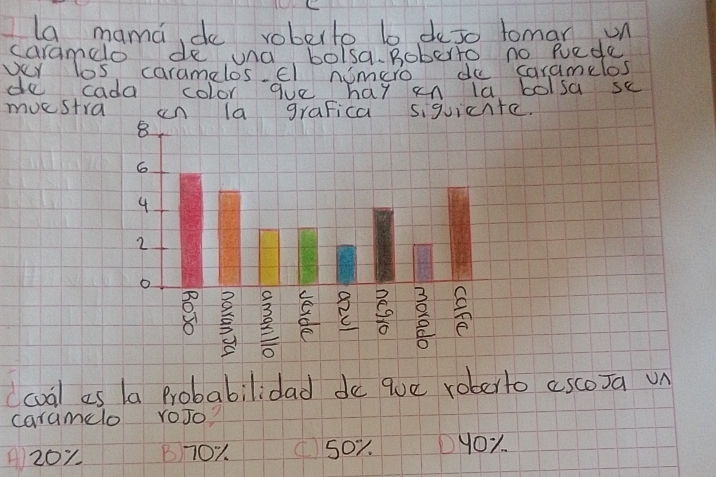 I la mamá de roberto lo dejo tomar un
caramelo de una bolsa. Roberto no Puede
ver los caramelos. El número de caramelos
de cada color que hay en la bolsa se
muestra en la grafica siguiente.
8
6
4
2
0
ROJO
naranJa
amarillo
verde
azul
negro
morado
cafe
¿cuál es la Probabilidad de que roberto escoJa un
caramelo roJo?
A) 20% B) 70% C) 50% D) 40%